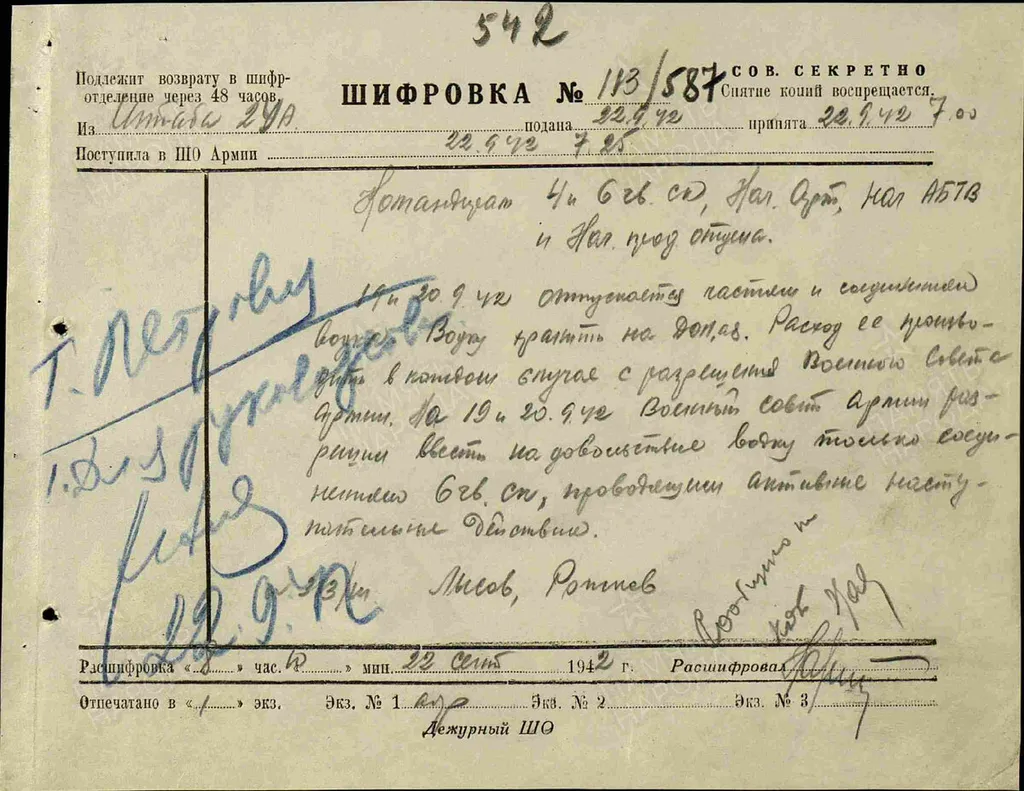 542
Подлежит возврату в шифр-
отделение через 48 часов.
ШИФРОВКА № 113/587
СОВ. СЕКРЕТНО
Снятие копий воспрещается.
Из Штаба 2УА подана 22.9.42 принята 22.9.42 7.00
Поступила в ШО Армии 22.9.42 7.25
Командирам 4 и 6 гв. ск, Нач. Арт, нач АБТВ
и Нач. прод. отдела.
19 и 20.9.42 отпускается частям и соединениям
водка. Водку хранить на ДОПах. Расход ее произво-
дить в каждом случае с разрешения Военного Совета
Армии. На 19 и 20.9.42 Военный совет Армии раз-
решил ввести на довольствие водку только соеди-
нениям 6 гв. ск, проводящим активные насту-
пательные действия.
Лысов, Рожнев
Т. Петрову
т. Для руководства
22.9.42
Расшифровка « 8 » час. » мин. 22 сент 1942 г. Расшифровал
Отпечатано в « 1 » экз. Экз. № 1 Экз. № 2 Экз. № 3
Дежурный ШО